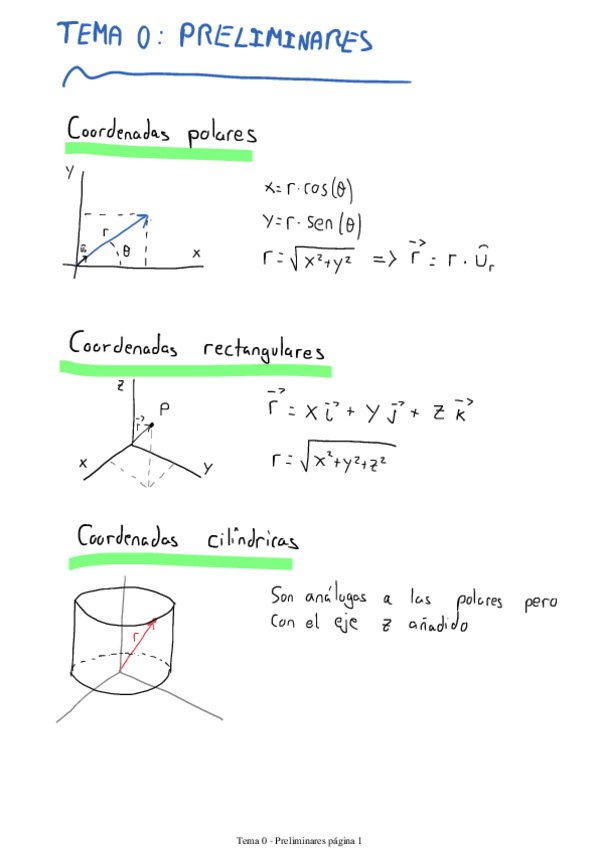 TEMA 0: PRELIMINARES
Coordenadas polares
y
r
θ
x
x=r·cos(θ)
y=r·sen(θ)
r=√x²+y² => r⃗=r·û_r
Coordenadas rectangulares
z
P
r⃗
x
y
r⃗=x i⃗+y j⃗+z k⃗
r=√x²+y²+z²
Coordenadas cilíndricas
r
Son análogas a las polares pero
con el eje z añadido
Tema 0 - Preliminares página 1